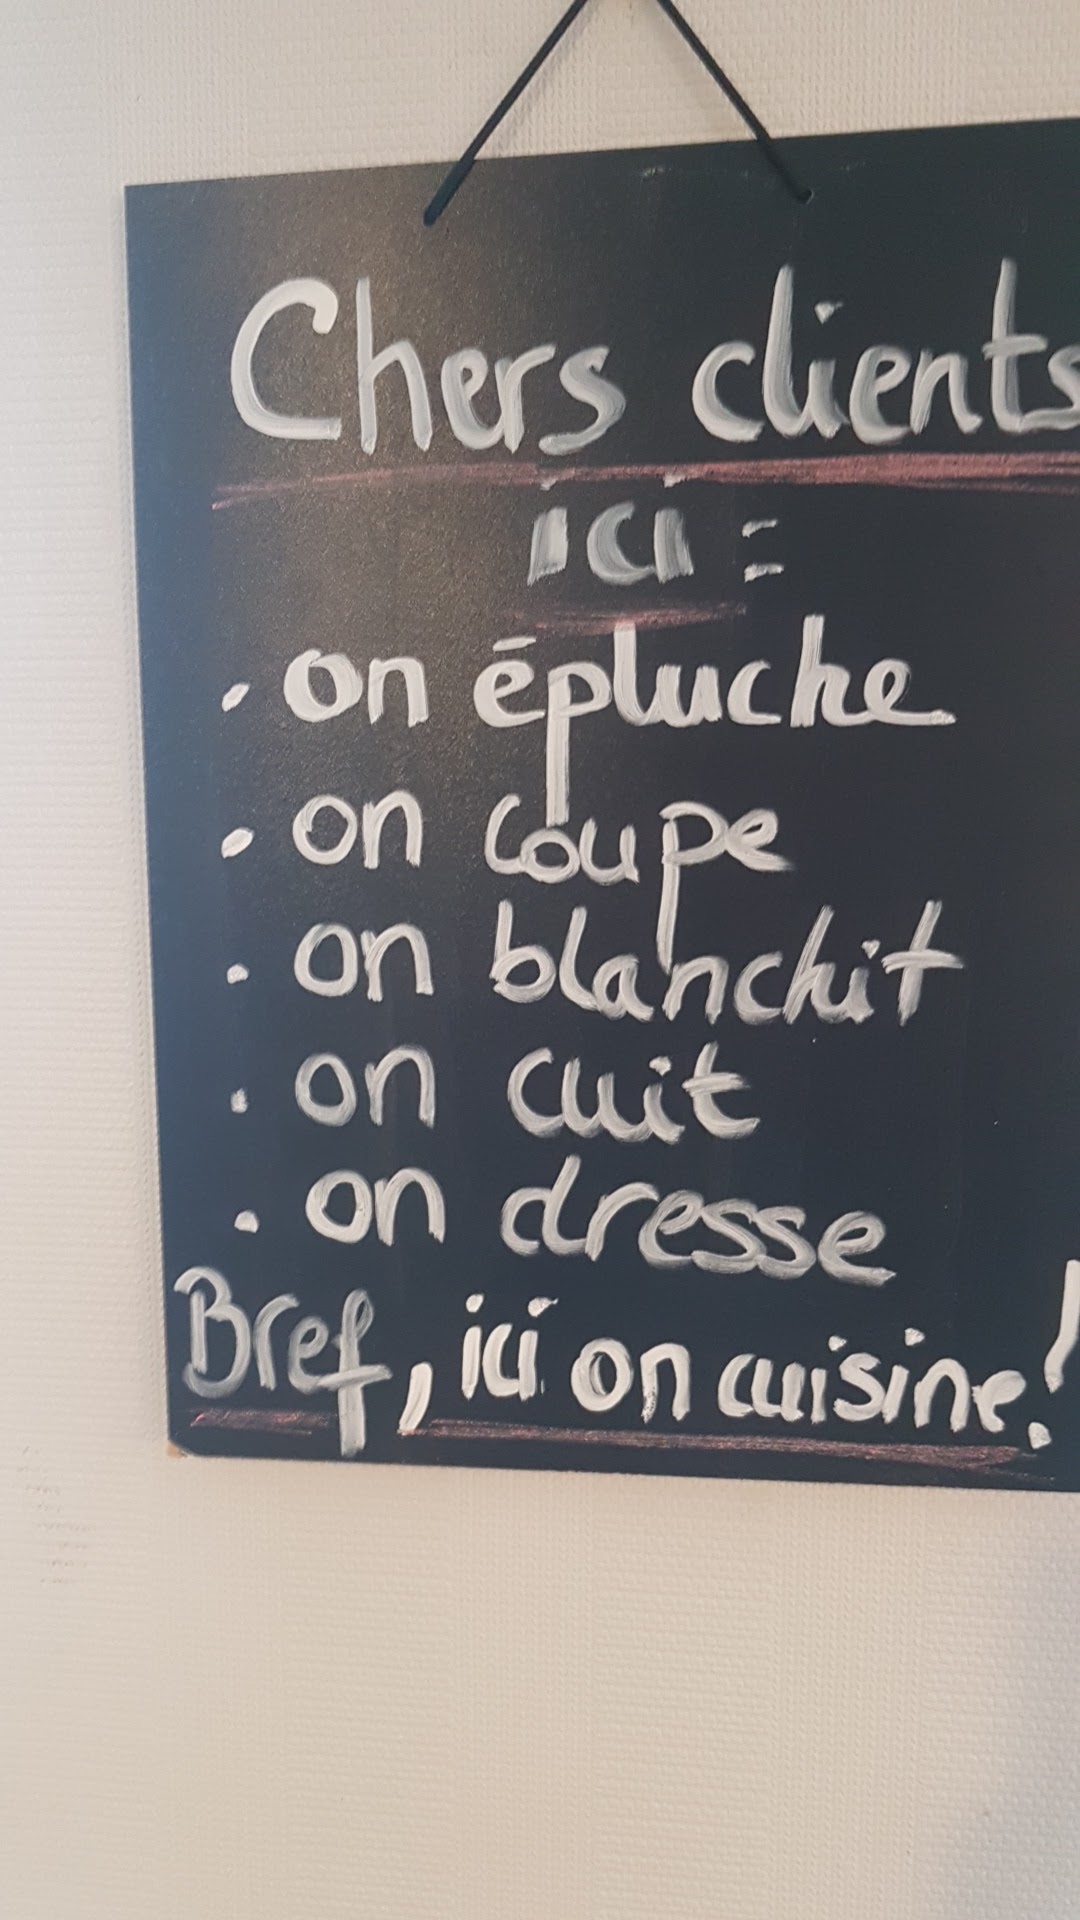 Chers clients
ici :
• on épluche
• on coupe
• on blanchit
• on cuit
• on dresse
Bref, ici on cuisine !